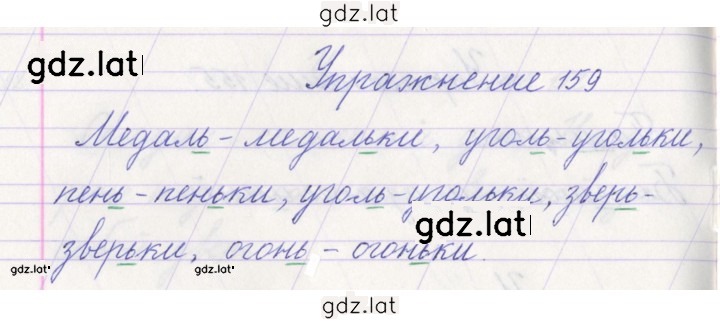 gdz.lat
gdz.lat
Упражнение 159
Медаль - медальки, уголь - угольки,
пень - пеньки, уголь - угольки, зверь -
gdz.lat
зверьки, огонь - огоньки.
gdz.lat gdz.lat
gdz.lat